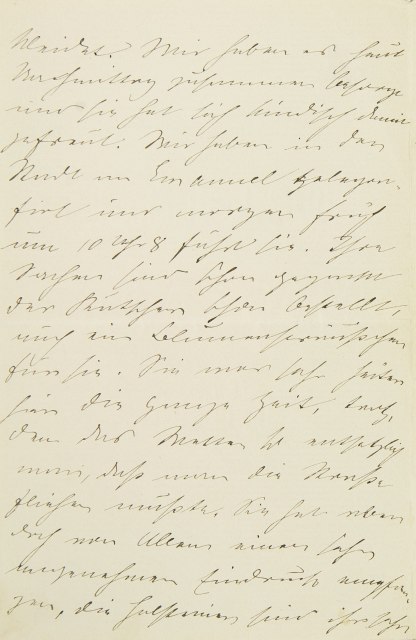 kleidet. Wir haben es heut
Nachmittag zusammen besorgt
und sie hat sich kindisch damit
gefreut. Wir haben in der
Stadt an Emanuel telegra-
firt und morgen früh
um 10 Uhr 8 fährt sie. Ihre
Sachen sind schon gepackt
der Kutscher schon bestellt,
auch ein Blumensträußchen
für sie. Sie war sehr heiter
hier die ganze Zeit, trotz-
dem das Wetter so entsetzlich
war, daß man die Straße
fliehen mußte. Sie hat aber
doch von Allem einen sehr
angenehmen Eindruck empfan-
gen, die Holsteiner sind ihr sehr